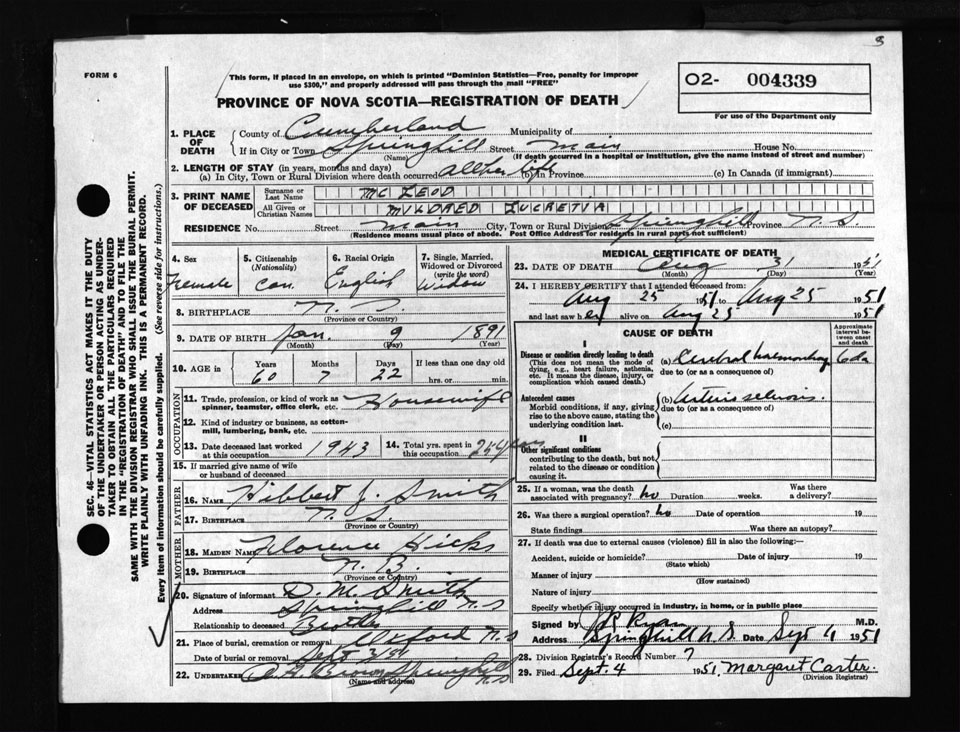 3
FORM 6
This form, if placed in an envelope, on which is printed "Dominion Statistics—Free, penalty for improper
use $300," and properly addressed will pass through the mail "FREE"
O2- 004339
For use of the Department only
PROVINCE OF NOVA SCOTIA—REGISTRATION OF DEATH
1. PLACE OF DEATH
County of Cumberland Municipality of
If in City or Town Springhill Street Main House No.
(Name) (If death occurred in a hospital or institution, give the name instead of street and number)
2. LENGTH OF STAY (in years, months and days)
(a) In City, Town or Rural Division where death occurred all her life (b) In Province (c) In Canada (if immigrant)
3. PRINT NAME OF DECEASED
Surname or Last Name MC LEOD
All Given or Christian Names MILDRED LUCRETIA
RESIDENCE No. Street Main City, Town or Rural Division Springhill Province N. S.
(Residence means usual place of abode. Post Office Address for residents in rural parts not sufficient)
4. Sex Female
5. Citizenship (Nationality) Can.
6. Racial Origin English
7. Single, Married, Widowed or Divorced (write the word) Widow
8. BIRTHPLACE N. S.
(Province or Country)
9. DATE OF BIRTH Jan. 9 1891
(Month) (Day) (Year)
10. AGE in Years 60 Months 7 Days 22 If less than one day old hrs. or min.
OCCUPATION
11. Trade, profession, or kind of work as spinner, teamster, office clerk, etc. Housewife
12. Kind of industry or business, as cotton-mill, lumbering, bank, etc.
13. Date deceased last worked at this occupation 1943
14. Total yrs. spent in this occupation 25 years
15. If married give name of wife or husband of deceased
FATHER
16. NAME Hibbert J. Smith
17. BIRTHPLACE N. S.
(Province or Country)
MOTHER
18. MAIDEN NAME Florence Hicks
19. BIRTHPLACE N. B.
(Province or Country)
20. Signature of informant D. M. Smith
Address Springhill N. S
Relationship to deceased Brother
21. Place of burial, cremation or removal Oxford N. S
Date of burial or removal Sept 3/51
22. UNDERTAKER Brown Springhill N. S
(Name and address)
MEDICAL CERTIFICATE OF DEATH
23. DATE OF DEATH Aug 31 1951
(Month) (Day) (Year)
24. I HEREBY CERTIFY that I attended deceased from:
Aug 25 1951 to Aug 25 1951
and last saw her alive on Aug 25 1951
CAUSE OF DEATH
Approximate interval between onset and death
I
Disease or condition directly leading to death
(This does not mean the mode of dying, e.g., heart failure, asthenia, etc. It means the disease, injury, or complication which caused death.)
(a) Cerebral haemorrhage 6 da
due to (or as a consequence of)
Antecedent causes
Morbid conditions, if any, giving rise to the above cause, stating the underlying condition last.
(b) Arteriosclerosis.
due to (or as a consequence of)
(c)
II
Other significant conditions
contributing to the death, but not related to the disease or condition causing it
25. If a woman, was the death associated with pregnancy? no Duration weeks. Was there a delivery?
26. Was there a surgical operation? no Date of operation 19
State findings Was there an autopsy?
27. If death was due to external causes (violence) fill in also the following:—
Accident, suicide or homicide? Date of injury 19
(State which)
Manner of injury
(How sustained)
Nature of injury
Specify whether injury occurred in industry, in home, or in public place
Signed by Ryan M.D.
Address Springhill N. S. Date Sept 4 1951
28. Division Registrar's Record Number 7
29. Filed Sept. 4 1951 Margaret Carter.
(Division Registrar)
SEC. 46—VITAL STATISTICS ACT MAKES IT THE DUTY
OF THE UNDERTAKER OR PERSON ACTING AS UNDER-
TAKER TO OBTAIN ALL THE PARTICULARS REQUIRED
IN THE "REGISTRATION OF DEATH" AND TO FILE THE
SAME WITH THE DIVISION REGISTRAR WHO SHALL ISSUE THE BURIAL PERMIT.
WRITE PLAINLY WITH UNFADING INK. THIS IS A PERMANENT RECORD.
Every item of information should be carefully supplied. (See reverse side for instructions.)